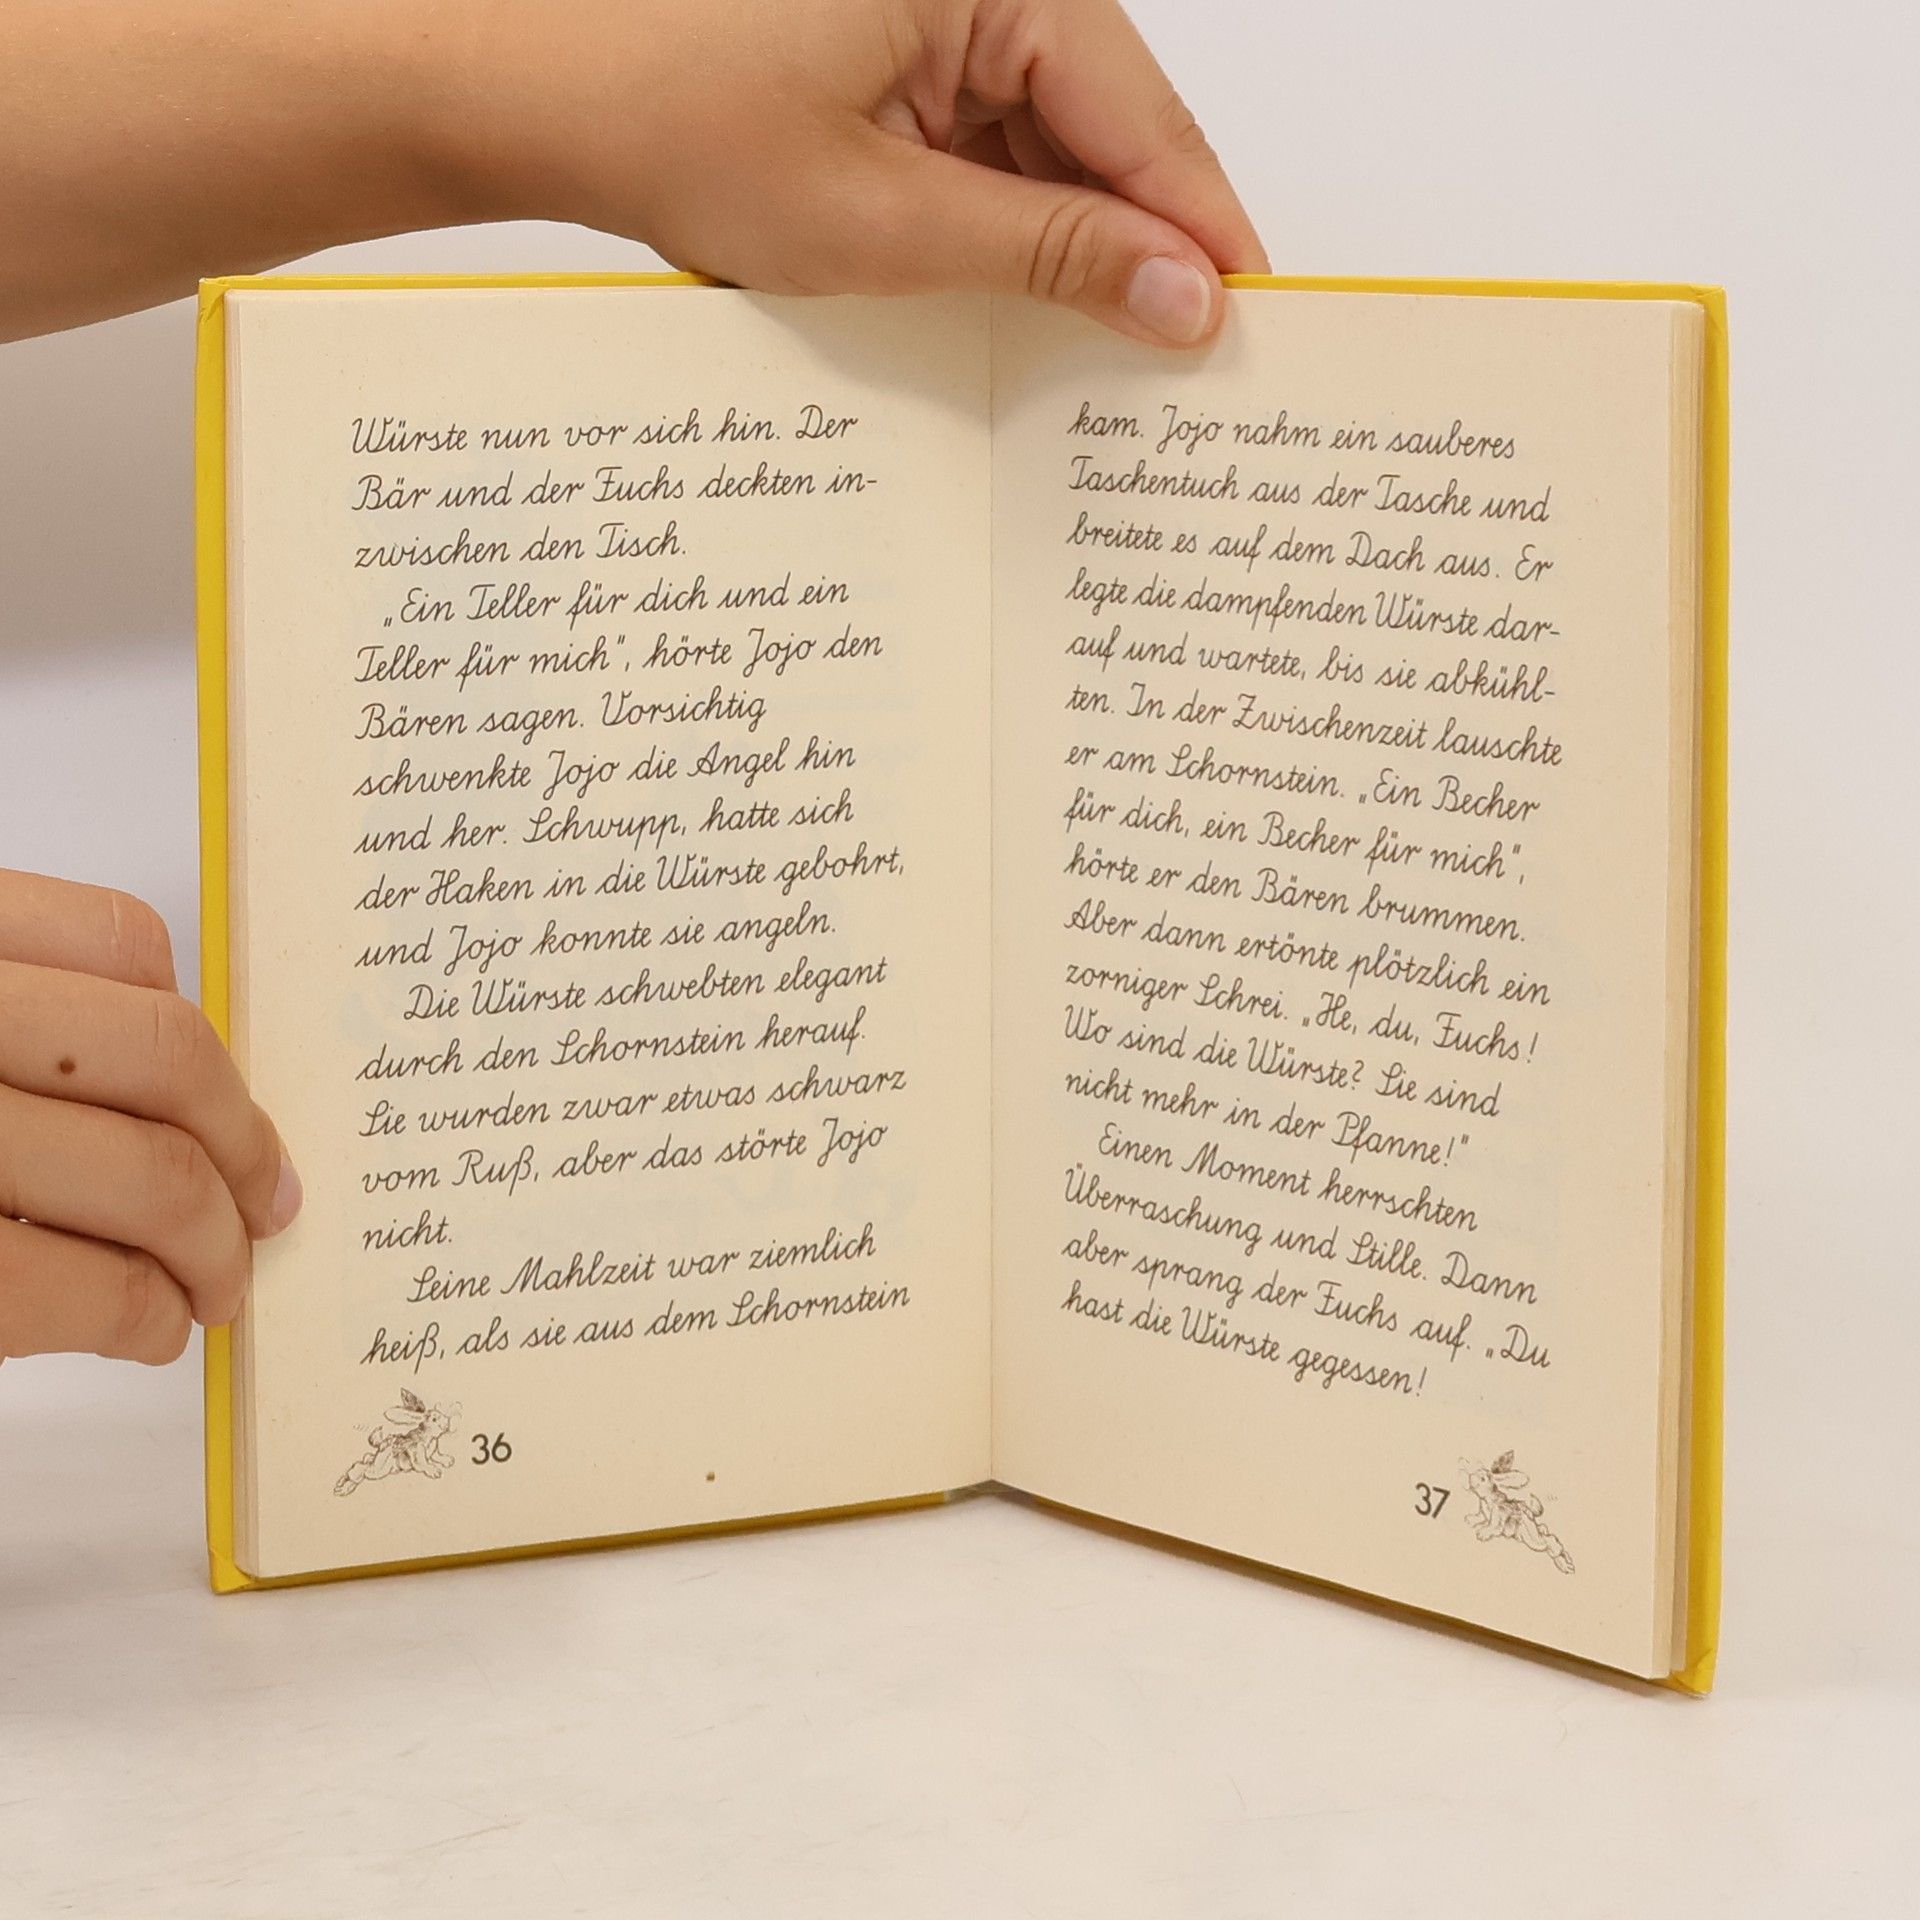 Würste nun vor sich hin. Der
Bär und der Fuchs deckten in-
zwischen den Tisch.
„Ein Teller für dich und ein
Teller für mich", hörte Jojo den
Bären sagen. Vorsichtig
schwenkte Jojo die Angel hin
und her. Schwupp, hatte sich
der Haken in die Würste gebohrt,
und Jojo konnte sie angeln.
Die Würste schwebten elegant
durch den Schornstein herauf.
Sie wurden zwar etwas schwarz
vom Ruß, aber das störte Jojo
nicht.
Seine Mahlzeit war ziemlich
heiß, als sie aus dem Schornstein
36
kam. Jojo nahm ein sauberes
Taschentuch aus der Tasche und
breitete es auf dem Dach aus. Er
legte die dampfenden Würste dar-
auf und wartete, bis sie abkühl-
ten. In der Zwischenzeit lauschte
er am Schornstein. „Ein Becher
für dich, ein Becher für mich",
hörte er den Bären brummen.
Aber dann ertönte plötzlich ein
zorniger Schrei. „He, du, Fuchs!
Wo sind die Würste? Sie sind
nicht mehr in der Pfanne!"
Einen Moment herrschten
Überraschung und Stille. Dann
aber sprang der Fuchs auf. „Du
hast die Würste gegessen!
37